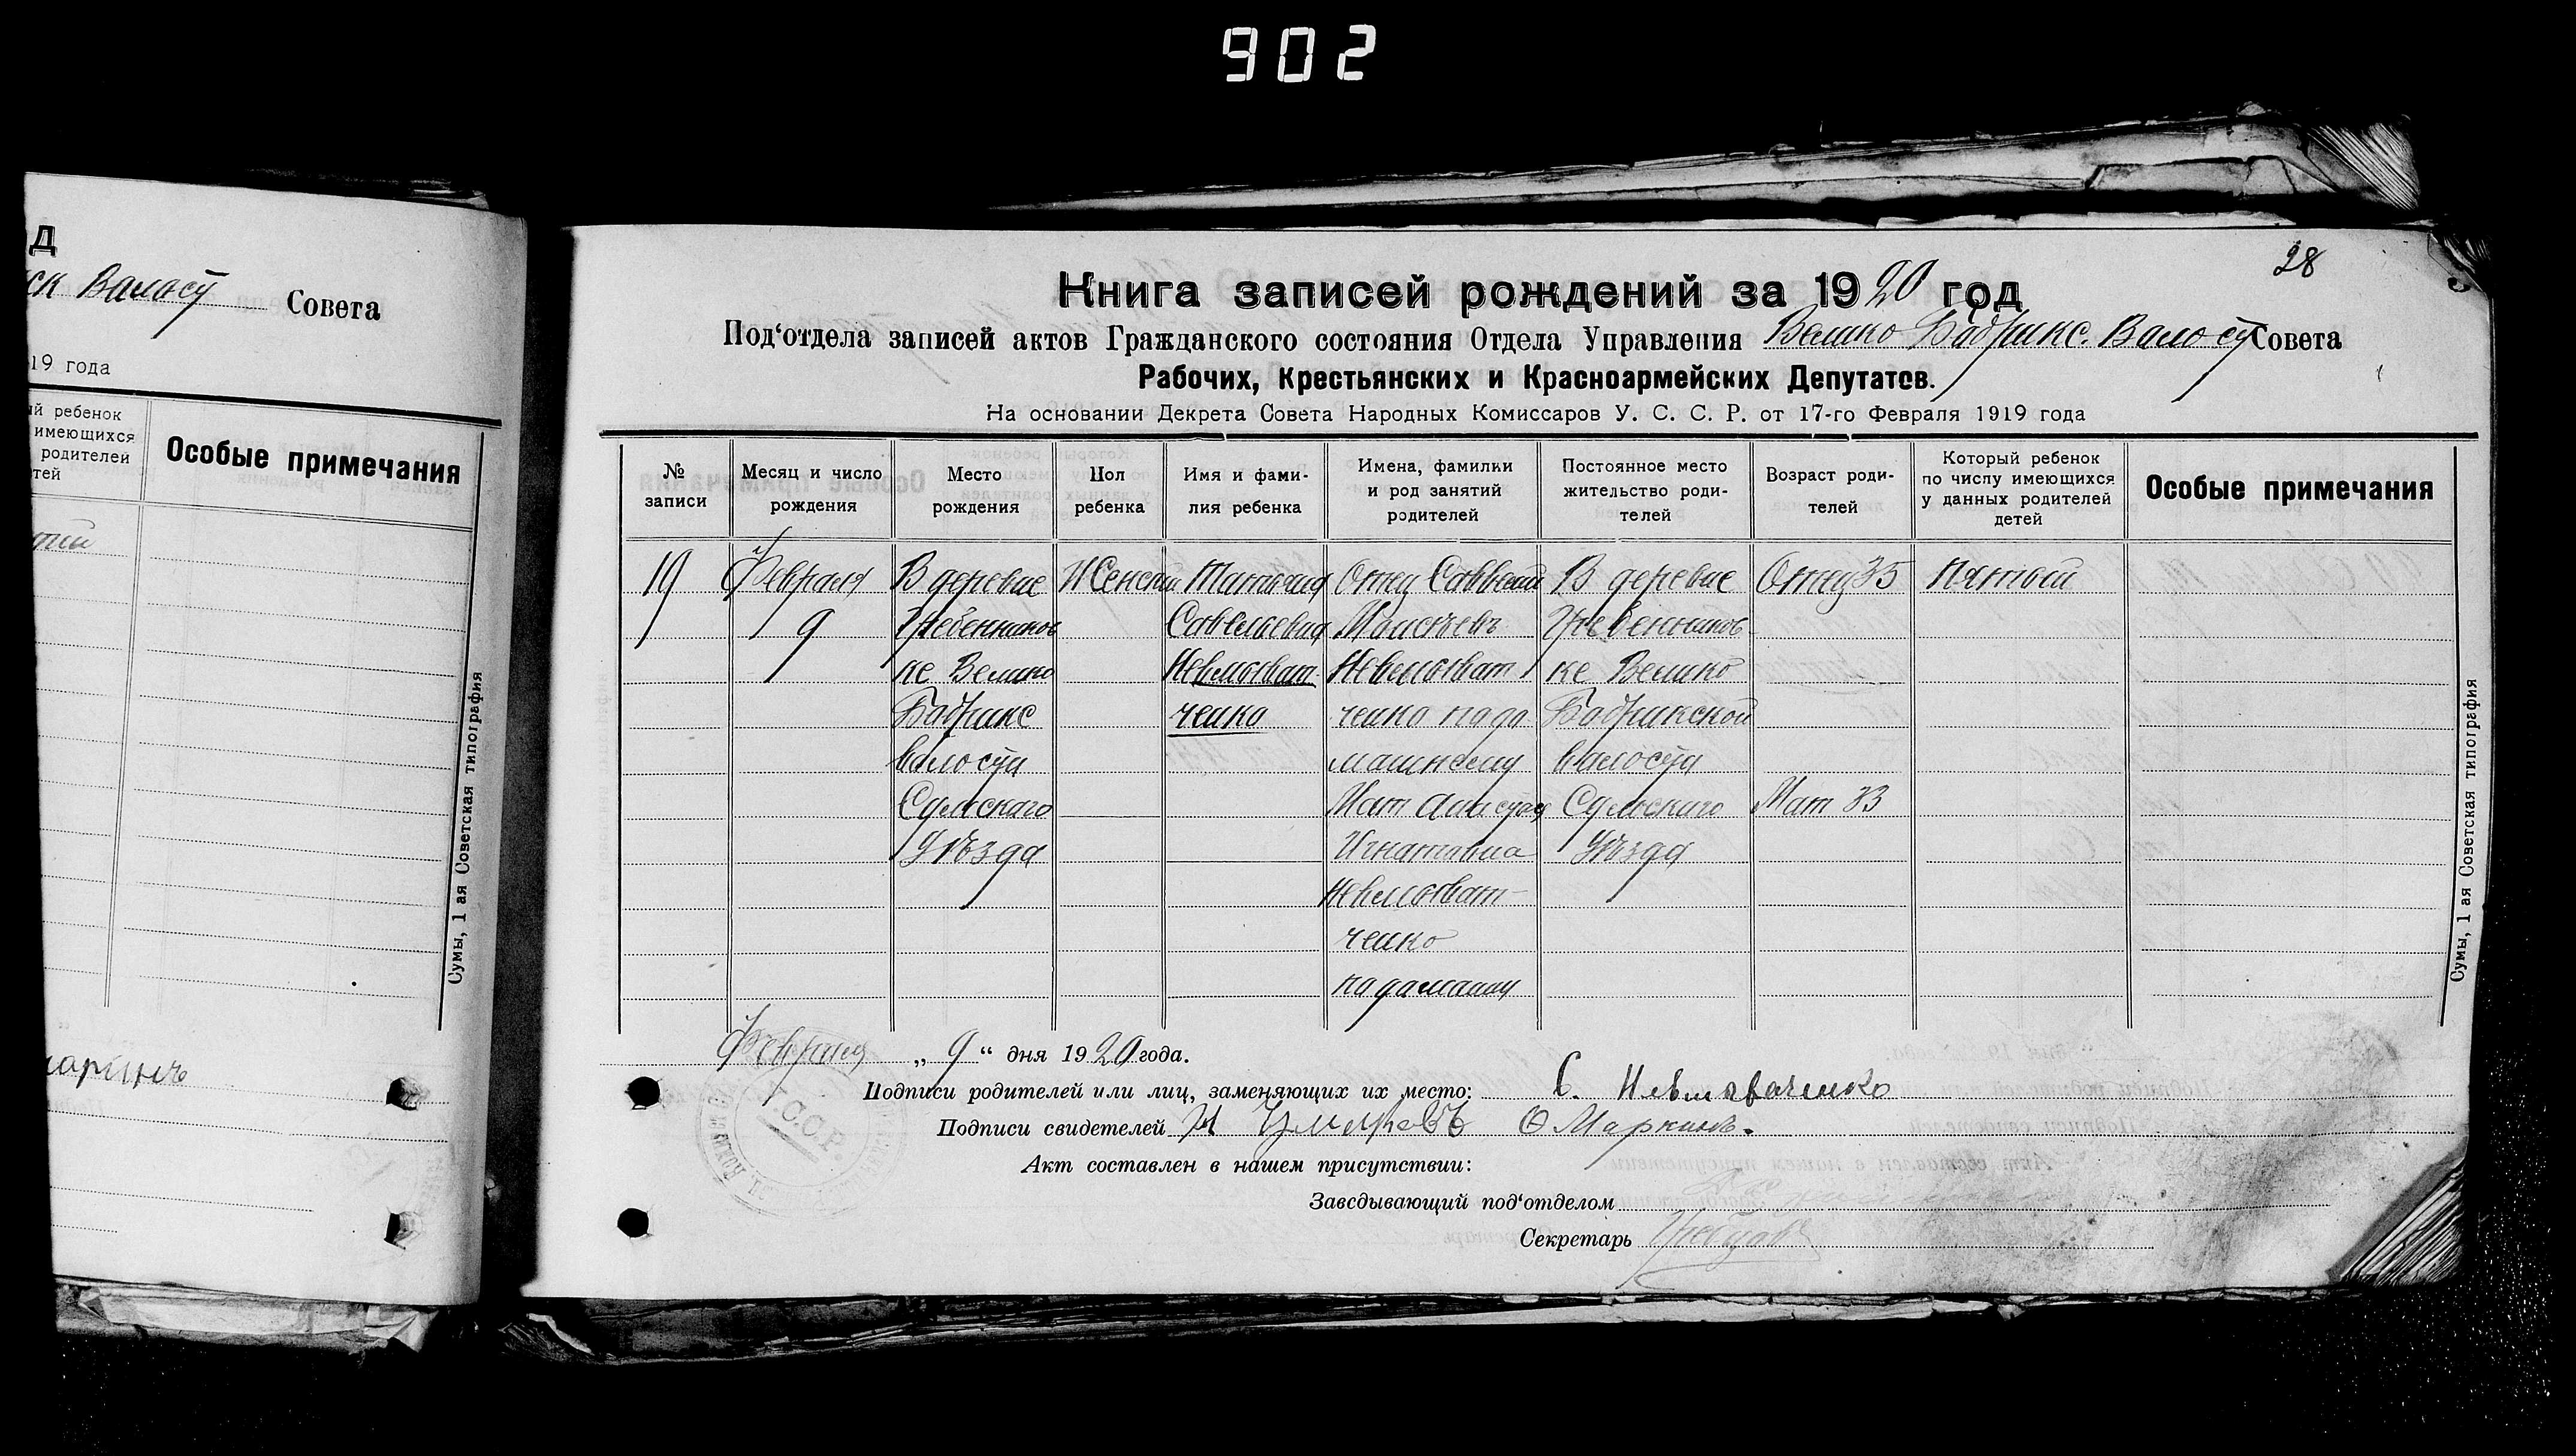 902
д
ск Валост Совета
19 года
ый ребенок
имеющихся
родителей
тей
Особые примечания
Сумы, 1 ая Советская типография
28
Книга записей рождений за 1920 год
Под'отдела записей актов Гражданского состояния Отдела Управления Велико Бобрикс. Валост Совета
Рабочих, Крестьянских и Красноармейских Депутатов.
На основании Декрета Совета Народных Комиссаров У. С. С. Р. от 17-го Февраля 1919 года
№ записи
Месяц и число рождения
Место рождения
Пол ребенка
Имя и фамилия ребенка
Имена, фамилки и род занятий родителей
Постоянное место жительство родителей
Возраст родителей
Который ребенок по числу имеющихся у данных родителей детей
Особые примечания
19
Февраля
9
В деревне
Гребенников
ке Велико
Бобрикс
валости
Сумскаго
Уѣзда
Женский
Татьяна
Савельевна
Отец Савелий
Моисѣевъ
ченко
В деревне
Гребенников
ке Велико
Бобрикской
валости
Сумскаго
Уѣзда
Мат
Игнатовна
ченко
Отец 35
Мат 33
пятый
Февраля „9“ дня 1920 года.
Подписи родителей или лиц, заменяющих их место: С.
Подписи свидетелей И О Маркинъ.
Акт составлен в нашем присутствии:
Заведывающий под'отделом
Секретарь
Сумы, 1 ая Советская типография